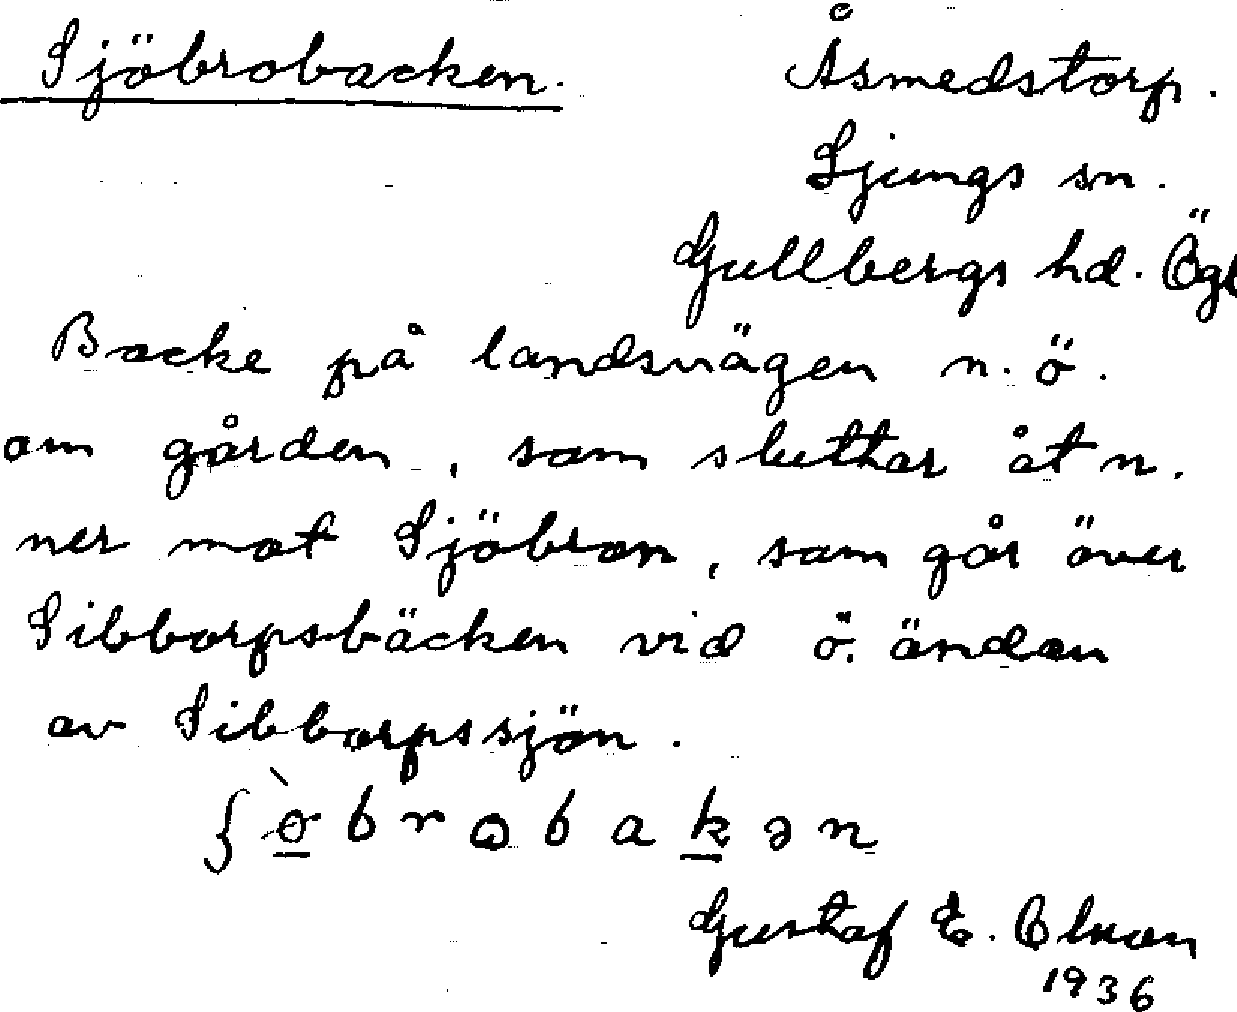 Sjöbrobacken.
Åsmedstorp.
Ljungs sn.
Gullbergs hd. Ögl
Backe på landsvägen n.ö.
om gården, som sluttar åt n.
ner mot Sjöbron, som går över
Sibborpsbäcken vid ö. ändan
av Sibborpssjön.
Gustaf E. Olsson
1936